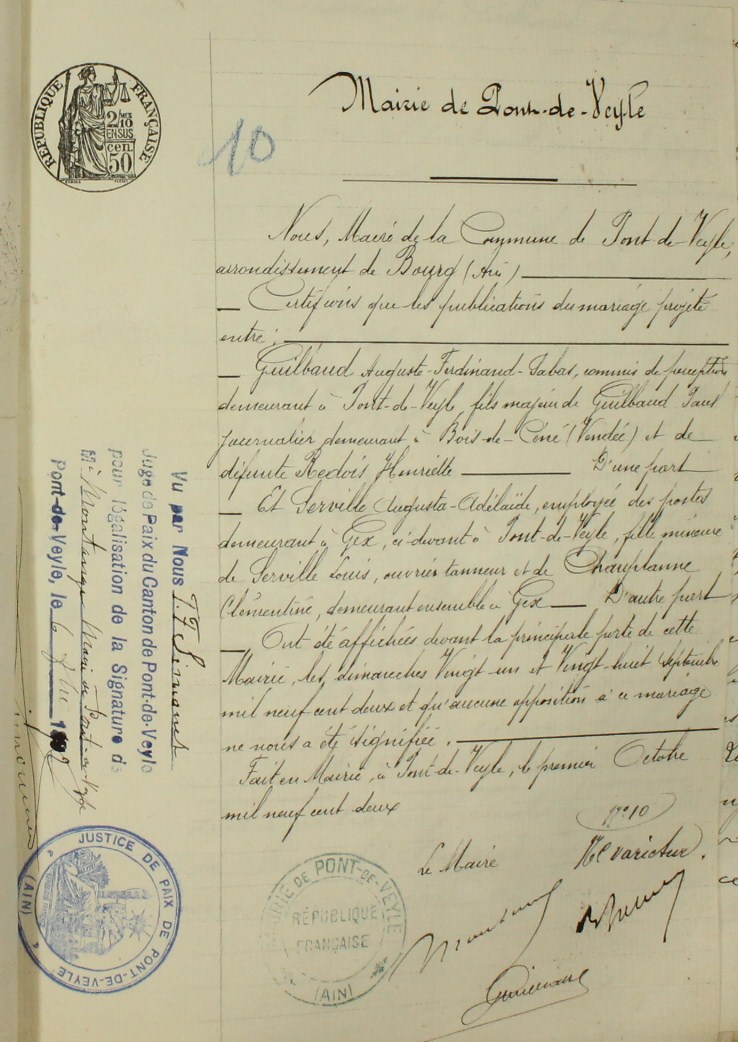 Mairie de Pont-de-Veyle
RÉPUBLIQUE FRANÇAISE
2/10 EN SUS
50 cen.
10
Nous, Maire de la Commune de Pont-de-Veyle,
arrondissement de Bourg (Ain)
Certifions que les publications du mariage projeté
entre:
Guilbaud Auguste-Ferdinand-, commis de perception
demeurant à Pont-de-Veyle, fils majeur de Guilbaud Paul
journalier demeurant à Bois-de-Céné (Vendée) et de
défunte Redois Henriette D'une part
Et Serville Augusta-Adélaïde, employée des postes
demeurant à Gex, ci-devant à Pont-de-Veyle, fille mineure
de Serville Louis, ouvrier tanneur et de Chauplanne
Clémentine, demeurant ensemble à Gex D'autre part
Ont été affichées devant la principale porte de cette
Mairie, les dimanches Vingt-un et Vingt-huit Septembre
mil neuf cent deux et qu'aucune opposition à ce mariage
ne nous a été signifiée.
Fait en Mairie, à Pont-de-Veyle, le premier Octobre
mil neuf cent deux
Nº 10
Le Maire Ne varietur.
MAIRIE DE PONT-DE-VEYLE
RÉPUBLIQUE
FRANÇAISE
(AIN)
Vu par Nous
Juge de Paix du Canton de Pont-de-Veyle
pour légalisation de la Signature de
Mr Maire de Pont-de-Veyle
Pont-de-Veyle, le 6
JUSTICE DE PAIX DE PONT-DE-VEYLE
(AIN)